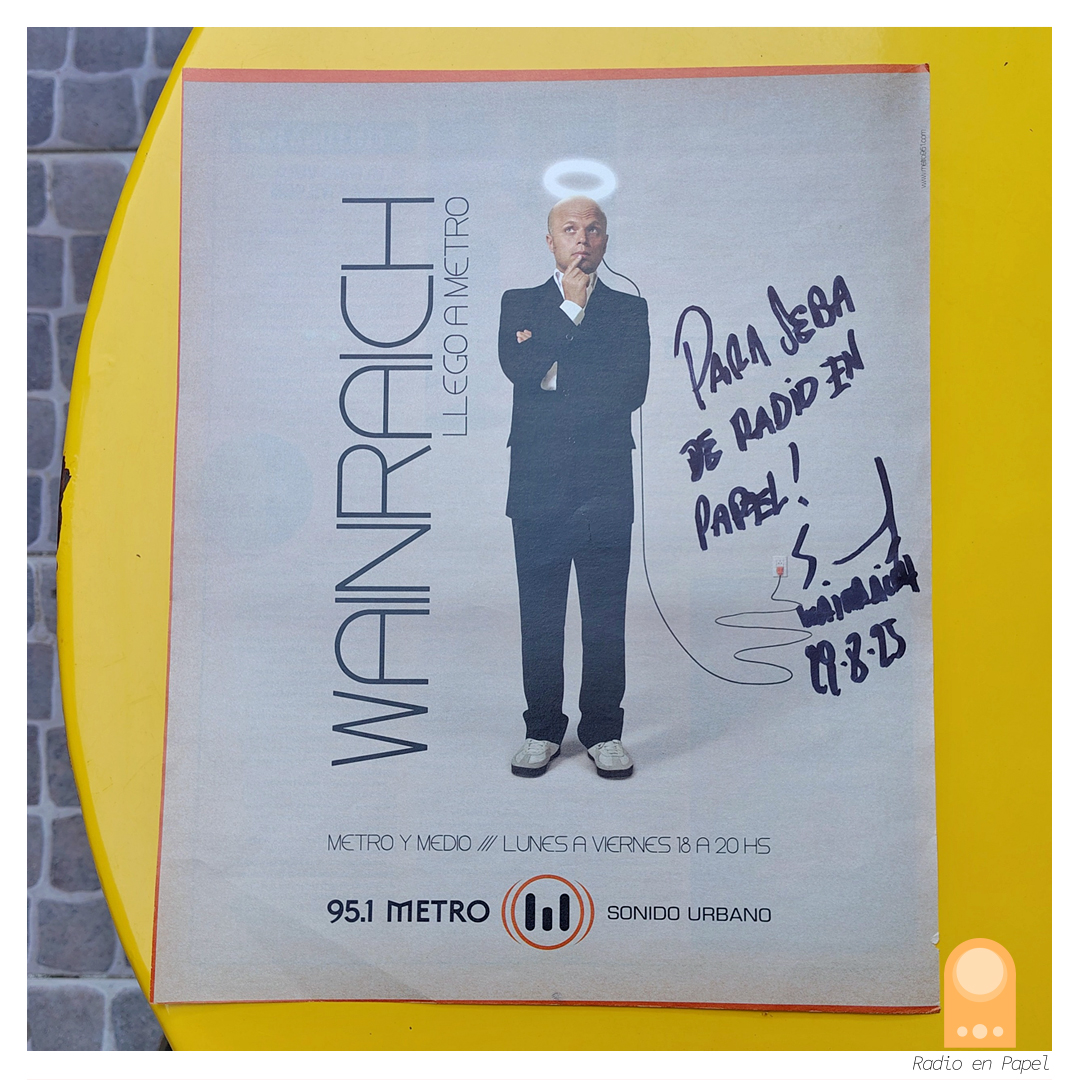 WAINRAICH
LLEGO A METRO
PARA SEBA
DE RADIO EN
PAPEL!
WAINRAICH
29·8·25
METRO Y MEDIO /// LUNES A VIERNES 18 A 20 HS
95.1 METRO
SONIDO URBANO
Radio en Papel